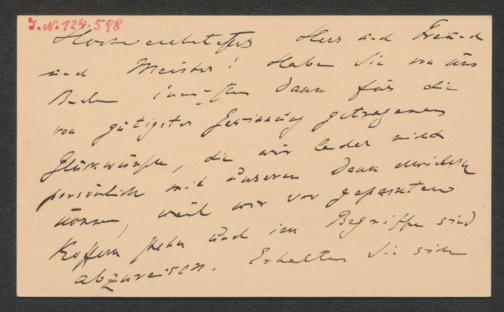 J.N. 124.598
Hochverehrtester Herr und Freund
und Meister! Haben Sie von uns
Beiden innigsten Dank für die
von gütigster Gesinnung getragenen
Glückwünsche, die wir leider nicht
persönlich mit unserem Dank erwidern
können, weil wir vor gepackten
Koffern stehn und im Begriffe sind
abzureisen. Erhalten Sie sich